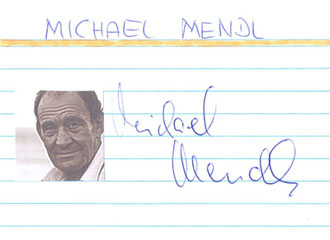 MICHAEL MENDL
Michael
Mendl